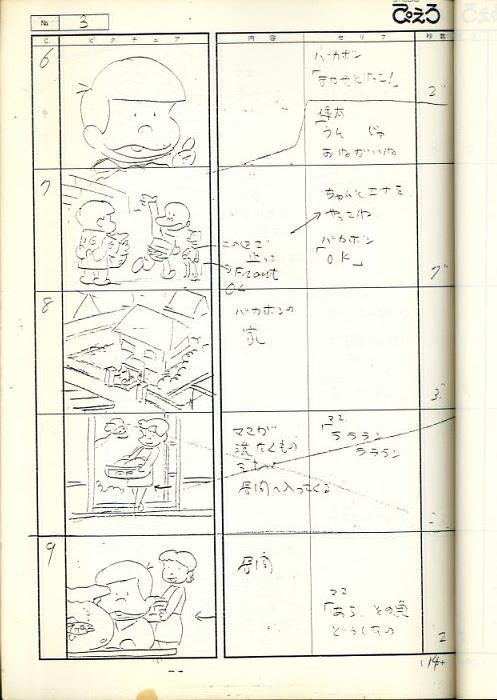 ぴえろ
No. 3
C. ピクチュア 内容 セリフ 秒数
6
バカボン
「まかせとけに!」
2"
得太
「うん じゃ
おねがいね
7
ちゃんとエサを
やってね
バカボン
「OK」
止って
Front
7"
8
バカボンの
家
3"
ママが
洗たくもの
居間へ入ってくる
ママ
「ラララン
ラララン
9
居間
ママ
「あら、その魚
どうしたの
2